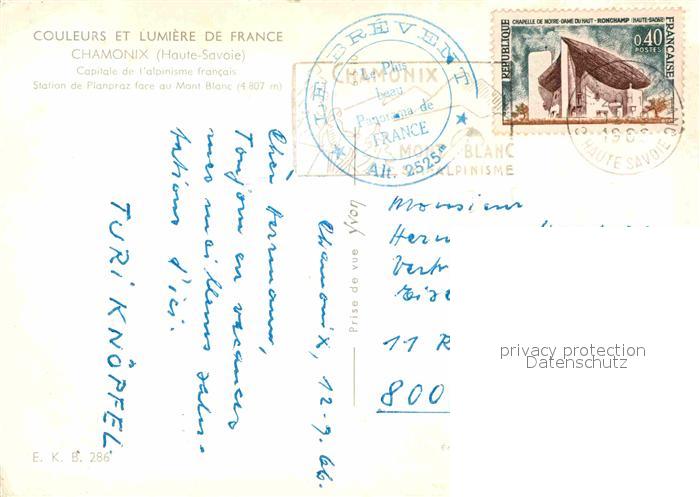 COULEURS ET LUMIÈRE DE FRANCE
CHAMONIX (Haute-Savoie)
Capitale de l'alpinisme français
Station de Planpraz face au Mont Blanc (4 807 m)
LE BRÉVENT
Le Plus
beau
Panorama de
FRANCE
Alt. 2525m
CHAMONIX
MONT-BLANC
ALPINISME
RÉPUBLIQUE FRANÇAISE
CHAPELLE DE NOTRE-DAME DU HAUT - RONCHAMP (HAUTE-SAÔNE)
0,40
POSTES
HAUTE SAVOIE
Chamonix, 12-9.66.
Cher Hermann,
Toujours en vacances
mes meilleures salu-
tations d'ici.
TURI KNÖPFEL
Prise de vue Yvon
Monsieur
Her
Vert
11 R
800
privacy protection
Datenschutz
E. K. B. 286